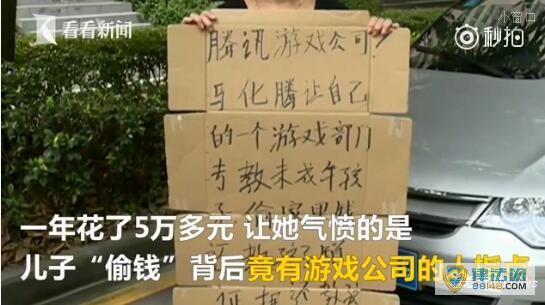 看看新闻
小窗口
秒拍
腾讯游戏公司?
马化腾让自己
的一个游戏部门
专教未成年孩
子偷家里钱
一年花了5万多元 让她气愤的是
儿子“偷钱”背后竟有游戏公司的人指点
律法网
89148.com